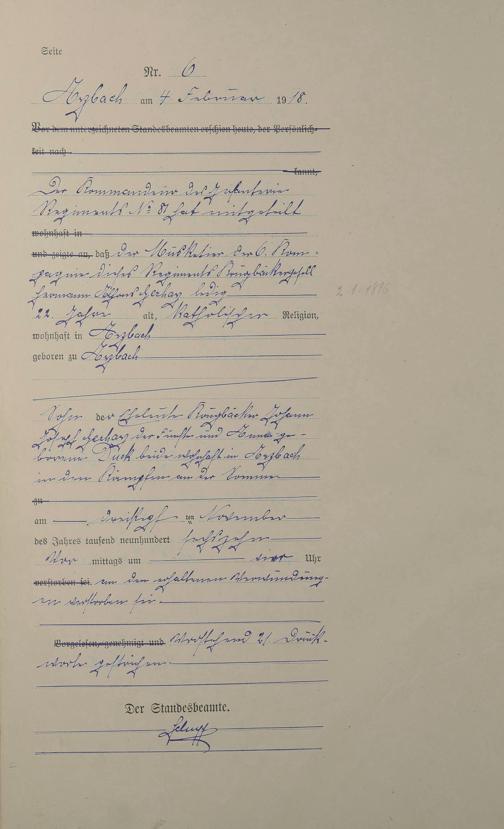 Seite
Nr. 6
Arzbach am 4 Februar 1918.
Vor dem unterzeichneten Standesbeamten erschien heute, der Persönlich-
keit nach
kannt,
Der Kommandeur des Infanterie
Regiments No 81 hat mitgeteilt
wohnhaft in
und zeigte an, daß der Musketier der 6. Kom-
pagnie dieses Regiments
Hermann Alfons Gerhaz ledig
2.1.1896
22 Jahre alt, katholischer Religion,
wohnhaft in Arzbach
geboren zu Arzbach
Sohn der Eheleute Johann
Joseph Gerhaz der fünfte und Anna ge-
borene Duck beide wohnhaft in Arzbach
in den Kämpfen an der Somme
zu
am November
des Jahres tausend neunhundert sechszehn
Vor mittags um vier Uhr
verstorben sei. an den erhaltenen Verwundung-
en verstorben sei.
Vorgelesen, genehmigt und Vorstehend 21 Druck-
worte gestrichen.
Der Standesbeamte.